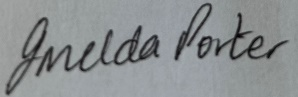 Imelda Porter